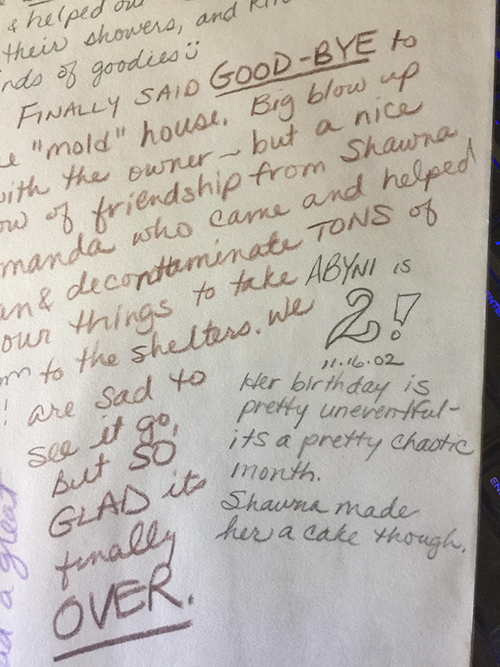 & helped out
their showers, and
nds of goodies
FINALLY SAID GOOD-BYE to
e "mold" house. Big blow up
with the owner~ but a nice
ow of friendship from Shawna
manda who came and helped
an & decontaminate TONS of
our things to take
m to the shelters. We
! are sad to
see it go,
But SO
GLAD its
finally
OVER.
ABYNI is
2!
11.16.02
Her birthday is
pretty uneventful-
its a pretty chaotic
month.
Shawna made
her a cake though.
ad a great